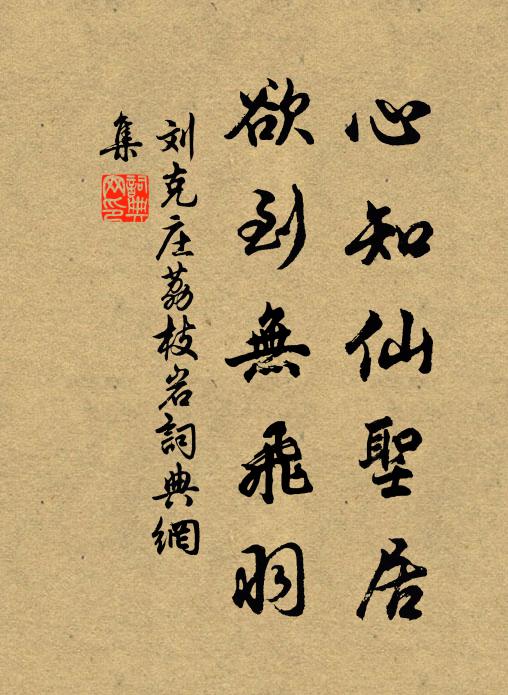 心知仙聖居
欲到無飛羽
刘克庄荔枝岩詞典網
集
詞典網印